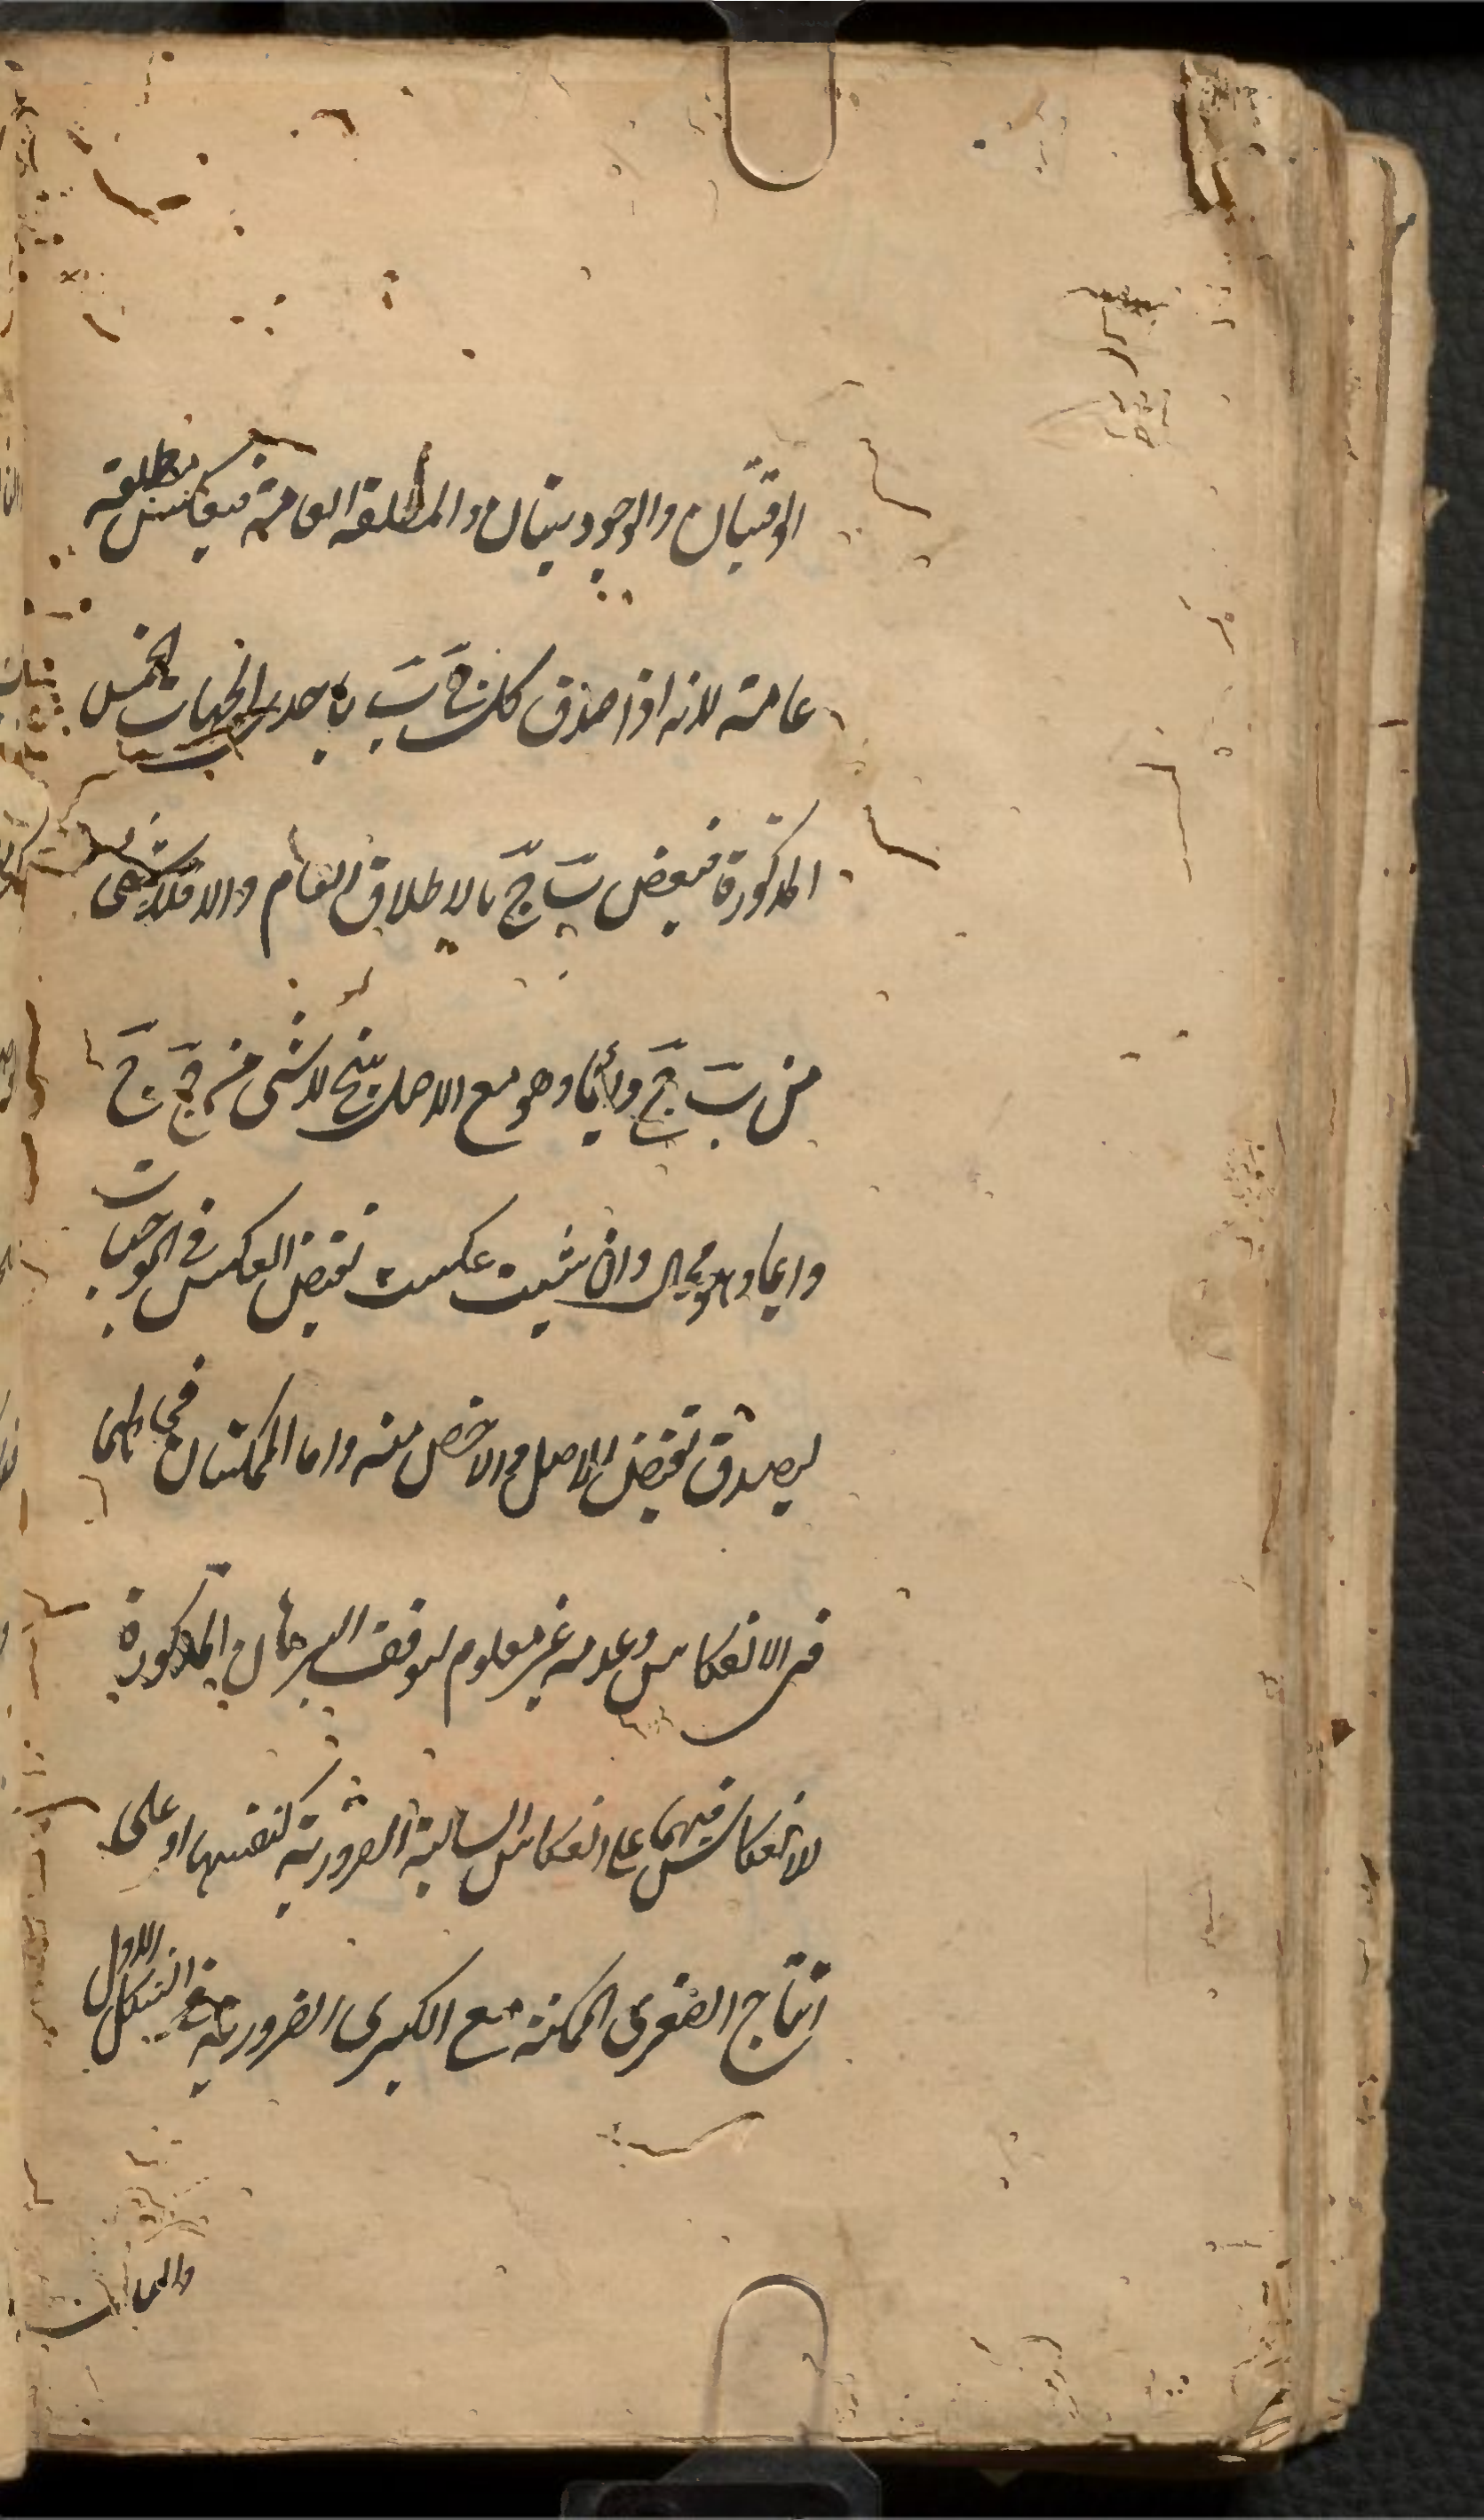 الوقتيتان والوجوديتان والمطلقة العامة فينعكس مطلقة
عامة لانه اذا صدق كل ج ب باحدى الجهات الخمس
المذكورة فبعض ب ج بالاطلاق العام والا فلا شئ
من ب ج دائما وهو مع الاصل ينتج لا شئ من ج ج
دائما وهو محال وان شئت عكست نقيض العكس فى الموجبات
ليصدق نقيض الاصل والاخص منه واما الممكنتان فحالهما
فى الانعكاس وعدمه غير معلوم لتوقف البرهان المذكورة
للانعكاس فيهما على انعكاس السالبة الضرورية كنفسها او على
انتاج الصغرى الممكنة مع الكبرى الضرورية فى الشكل الاول